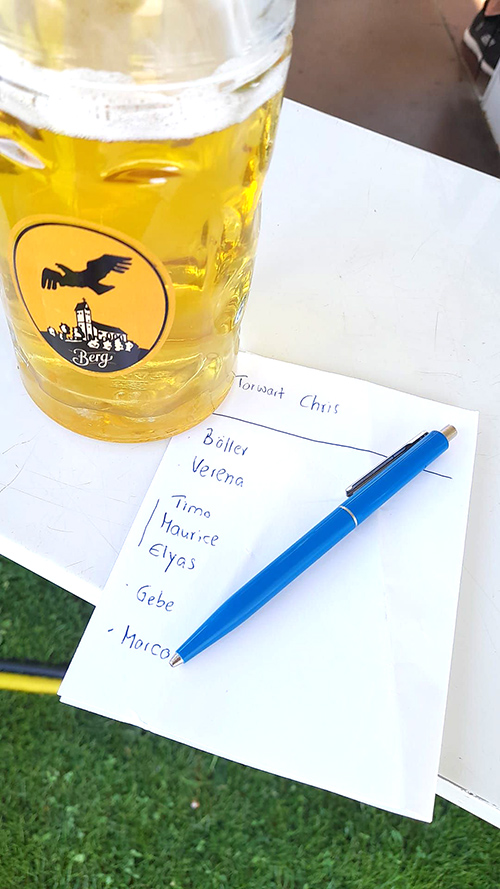 Berg
Torwart Chris
Böller
Verena
Timo
Maurice
Elyas
Gebe
Marco